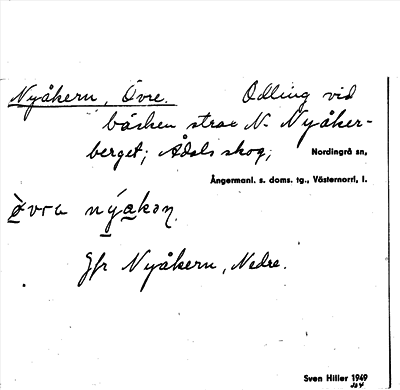 Nyåkern, Övre. Odling vid
bäcken strax N. Nyåker-
berget; Ådals skog; Nordingrå sn,
Ångermanl. s. doms. tg., Västernorrl. l.
nýakəṇ.
Jfr Nyåkern, Nedre.
Sven Hiller 1949